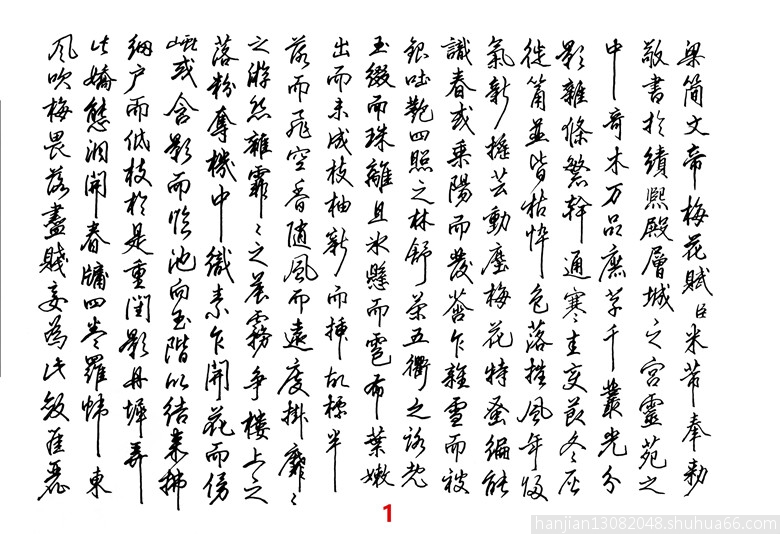 梁简文帝梅花賦臣米芾奉勅
敬書於績熙殿層城之宮靈苑之
中奇木万品庶草千叢光分
影雜條繁幹通寒圭变節冬灰
徙筩並皆枯悴色落摧風年歸
氣新摇芸動塵梅花特蚤編能
識春或乗陽而發乍雜雪而被
銀吐艷四照之林舒荣五衢之路既
玉綴而珠離且冰懸而雹布葉嫩
出而未成枝抽新而插故標半
落而飛空香随風而遠度掛靡ミ
之游丝雜霏ミ之晨霧争樓上之
落粉奪機中織素乍開花而傍
或含影而临池向玉階以结采拂
網户而低枝於是重閨影丹墀弄
此嬌態洞開春牖四卷羅帷東
風吹梅畏落盡賤妾為此敛
1
hanjian13082048.shuhua66.com